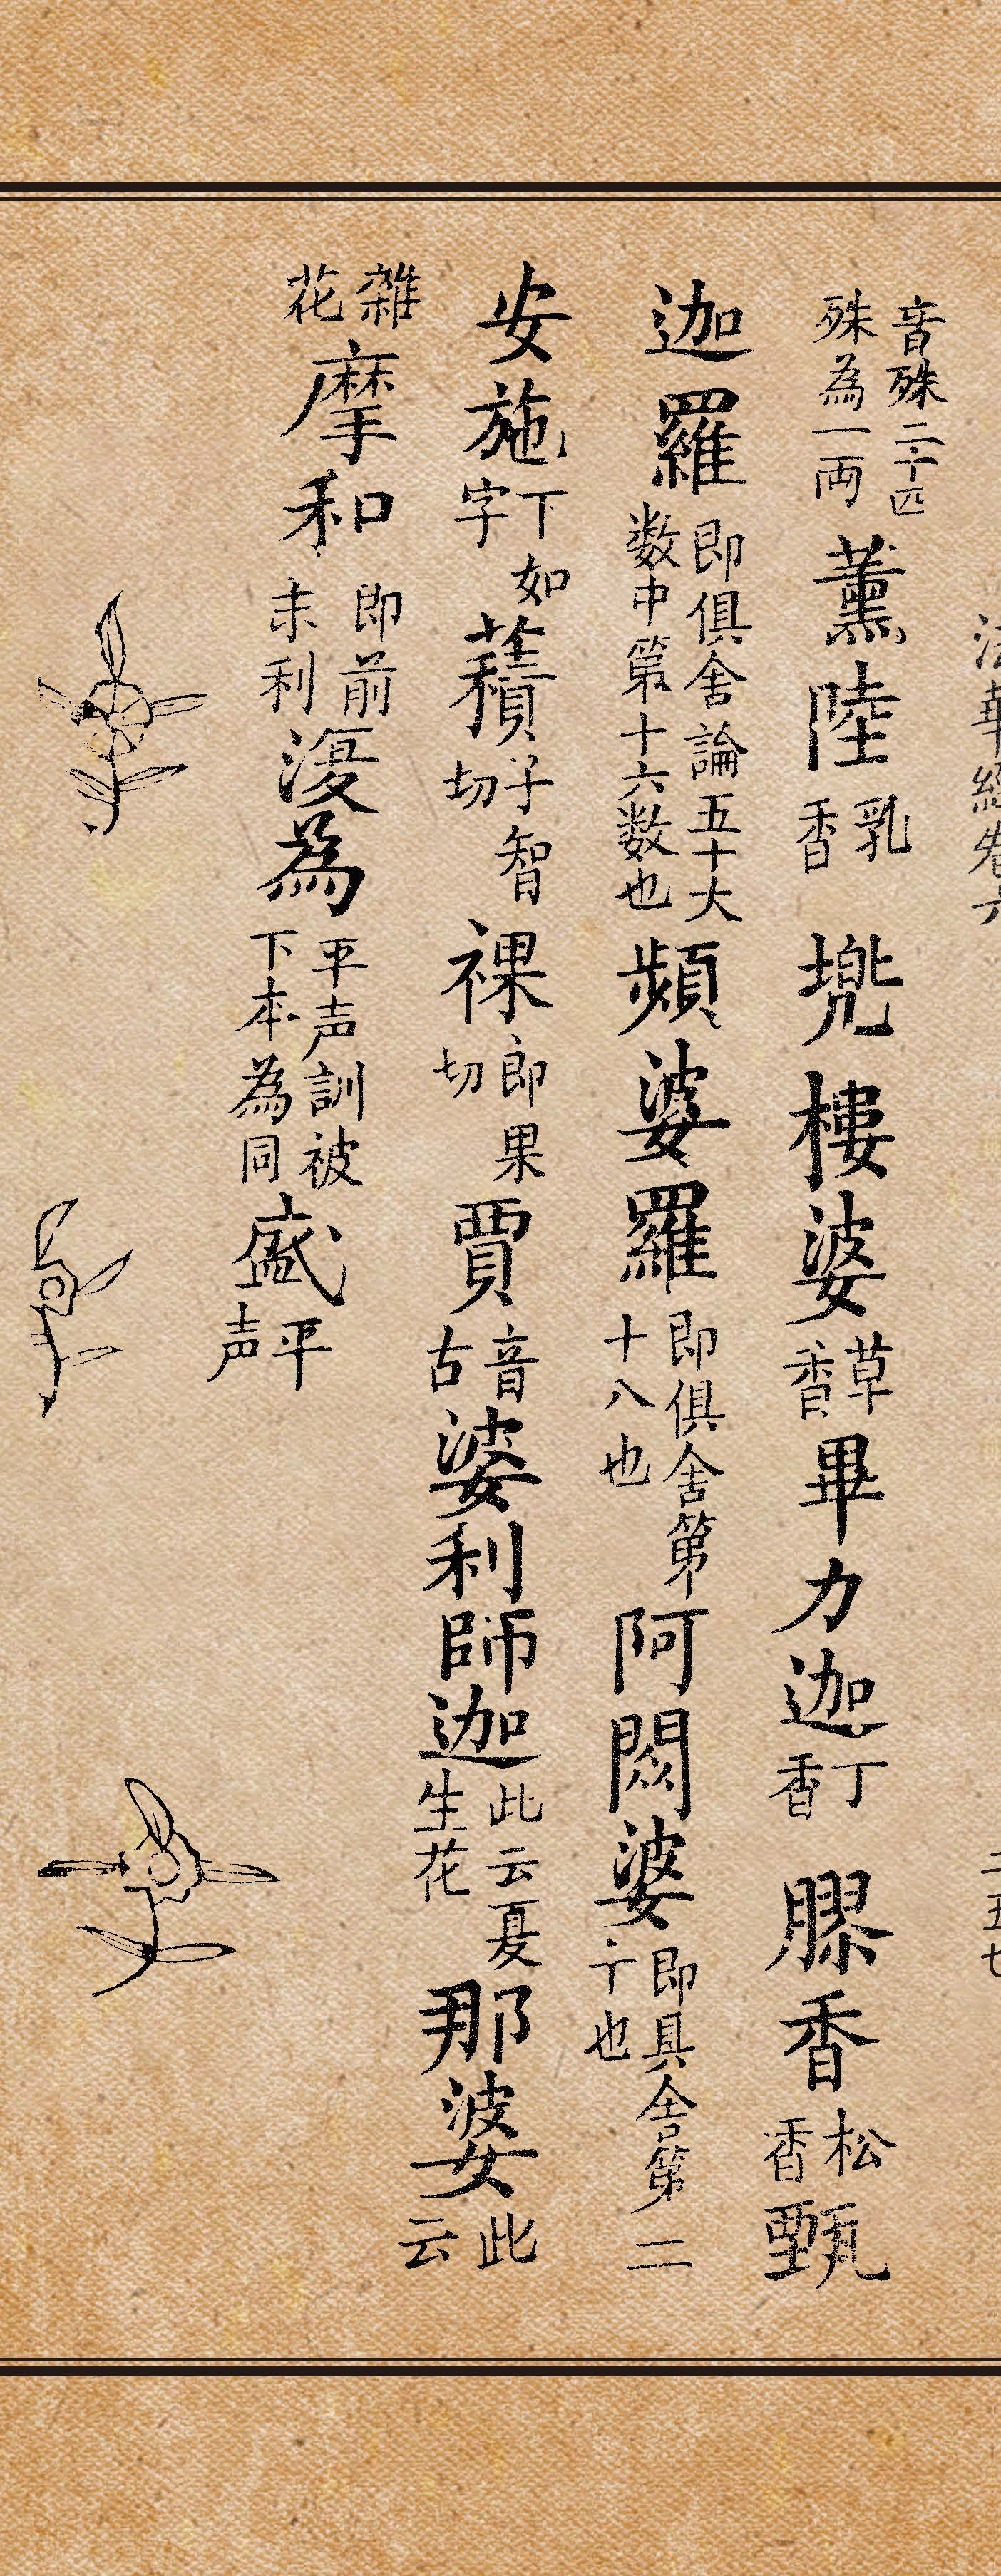 法華經卷六
二五七
音殊二十四殊為一両薫陸乳香兠樓婆草香畢力迦丁香膠香松香甄
迦羅即俱舍論五十大数中第十六数也頻婆羅即俱舍第十八也阿閦婆即具舍第二十也
安施下如字積子智切裸郎果切賈音古婆利師迦此云夏生花那婆此云
雜花摩和即前末利復為平声訓被下本為同盛平声